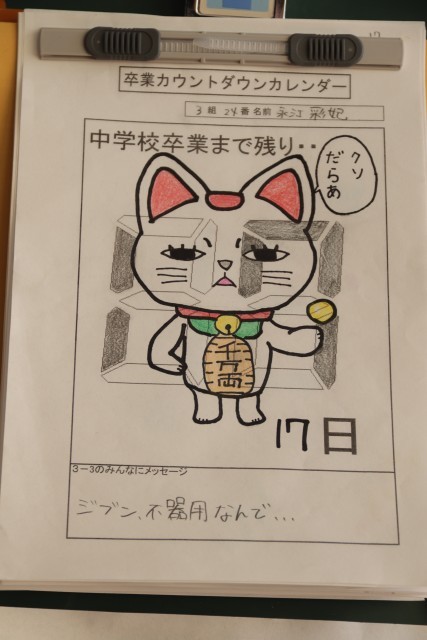 17
卒業カウントダウンカレンダー
3 組 24 番 名前 永江 彩妃
中学校卒業まで残り‥
クソ
だらあ
千万両
17日
3−3のみんなにメッセージ
ジブン、不器用なんで...